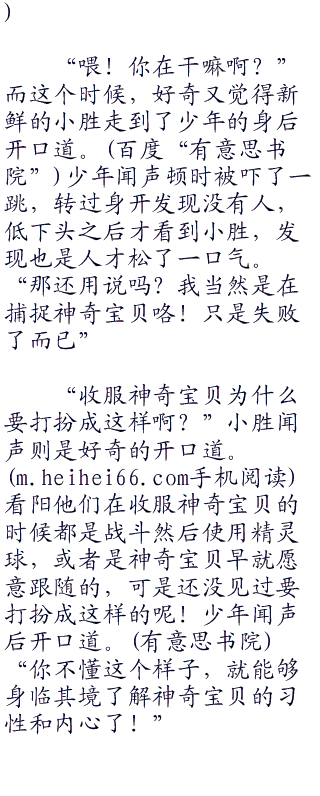 )
“喂！你在干嘛啊？”
而这个时候，好奇又觉得新
鲜的小胜走到了少年的身后
开口道。(百度“有意思书
院”)少年闻声顿时被吓了一
跳，转过身开发现没有人，
低下头之后才看到小胜，发
现也是人才松了一口气。
“那还用说吗？我当然是在
捕捉神奇宝贝咯！只是失败
了而已”
“收服神奇宝贝为什么
要打扮成这样啊？”小胜闻
声则是好奇的开口道。
(m.heihei66.com手机阅读)
看阳他们在收服神奇宝贝的
时候都是战斗然后使用精灵
球，或者是神奇宝贝早就愿
意跟随的，可是还没见过要
打扮成这样的呢！少年闻声
后开口道。(有意思书院)
“你不懂这个样子，就能够
身临其境了解神奇宝贝的习
性和内心了！”